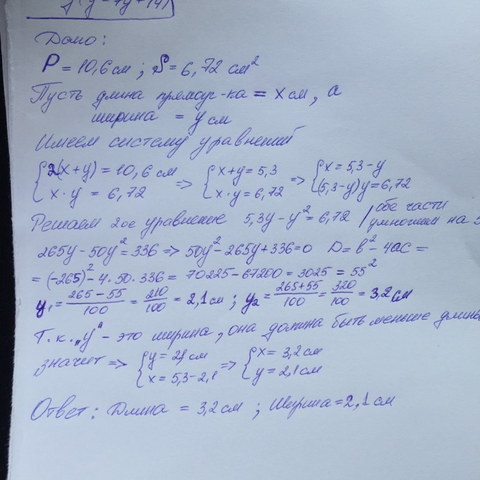 Дано:
P = 10,6 см ; S = 6,72 см²
Пусть длина прямоуг-ка = x см, а
ширина = y см
Имеем систему уравнений
{2(x+y) = 10,6 см => {x+y = 5,3 => {x = 5,3-y
x·y = 6,72 x·y = 6,72 (5,3-y)y = 6,72
Решаем 2ое уравнение 5,3y - y² = 6,72 / обе части
умножаем на
265y - 50y² = 336 => 50y² - 265y + 336 = 0 D = в² - 4ас =
= (-265)² - 4·50·336 = 70225 - 67200 = 3025 = 55²
y₁ = 265-55/100 = 210/100 = 2,1 см ; y₂ = 265+55/100 = 320/100 = 3,2 см
Т.к. „y" - это ширина, она должна быть меньше длины
значит => {y = 2,1 см => {x = 3,2 см
x = 5,3-2,1 y = 2,1 см
Ответ: Длина = 3,2 см ; Ширина = 2,1 см